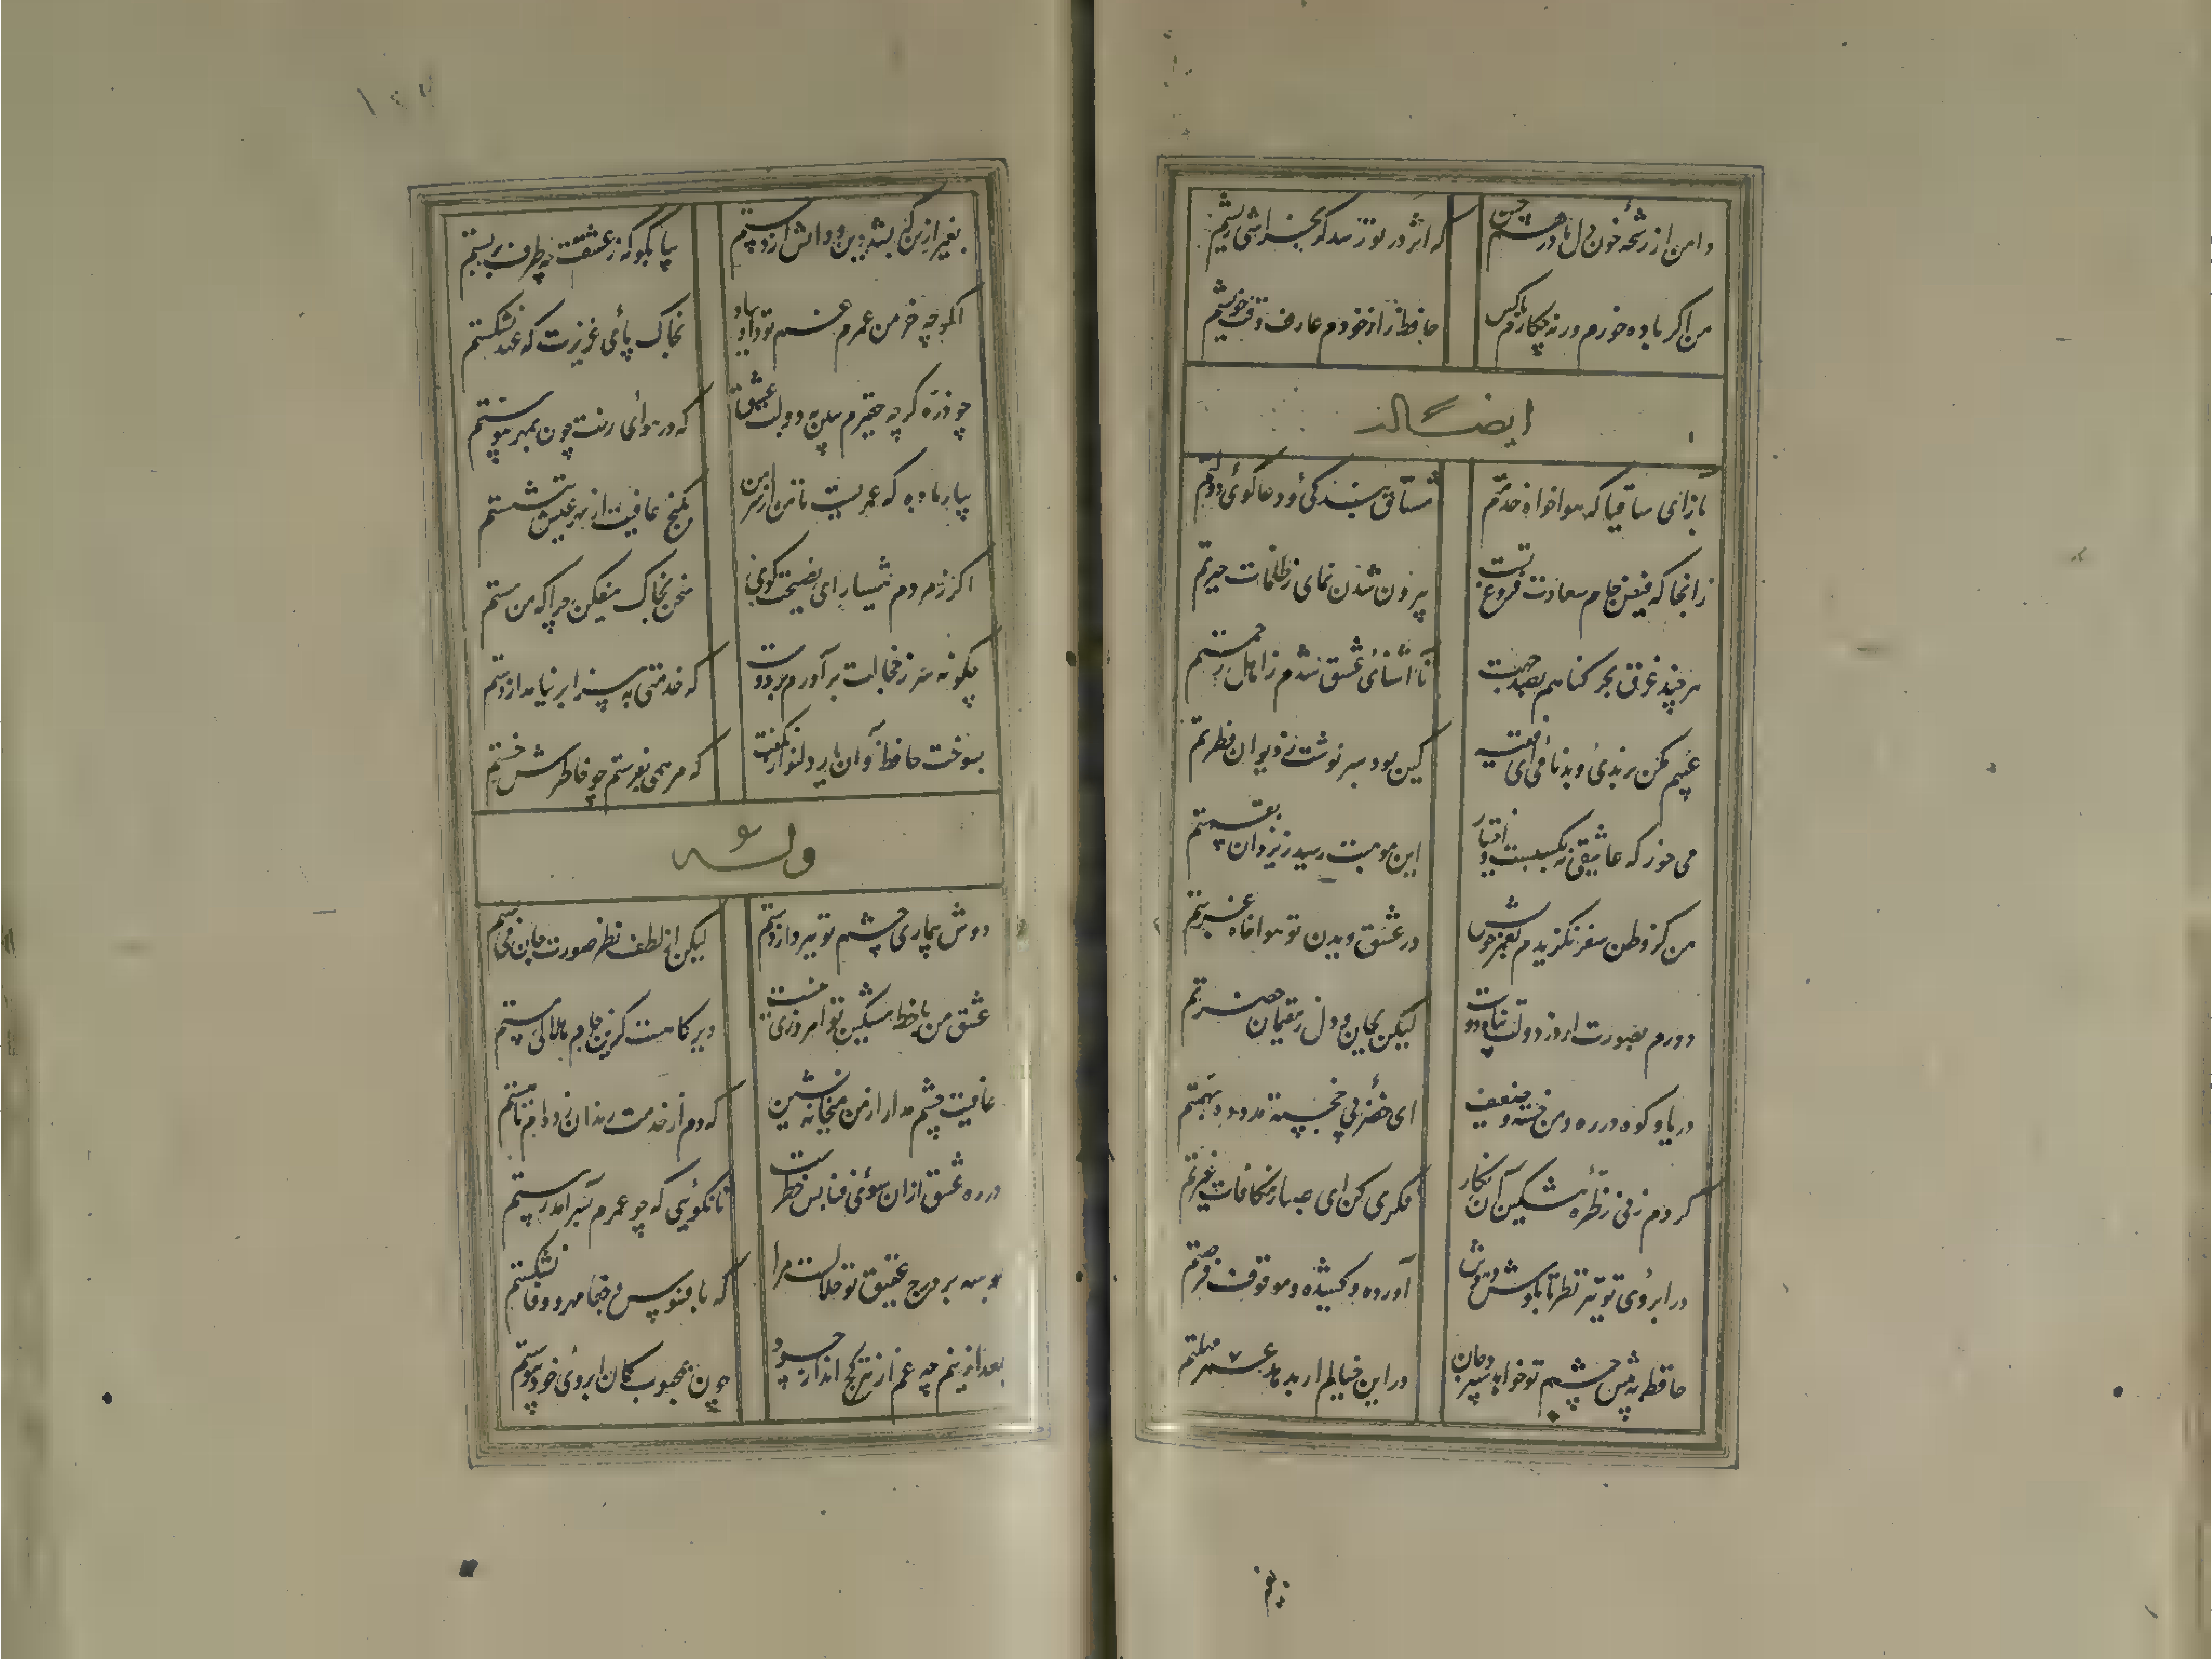 دامن از رشحه خون دل ما درهم چین
که اثر در تو رسد گر بخراشی ریشم
من اگر باده خورم ورنه چکارم با کس
حافظ راز خودم عارف وقت خویشم
ایضاً له
باز آی ساقیا که هوا خواه خدمتم
مشتاق بندگی و دعا گوی دولتم
زانجا که فیض جام سعادت فروغ تست
بیرون شدن نمای ز ظلمات حیرتم
هر چند غرق بحر گناهم بصد جهت
تا آشنای عشق شدم ز اهل رحمتم
عیبم مکن برندی و بدنامی ای فقیه
کین بود سرنوشت ز دیوان فطرتم
می خور که عاشقی نه بکسبست و اختیار
این موهبت رسید ز یزدان بقسمتم
من کز وطن سفر نگزیدم بعمر خویش
در عشق دیدن تو هوا خواه غربتم
دورم بصورت از در دولت پناه دوست
لیکن بجان و دل ز مقیمان حضرتم
دریا و کوه در ره و من خسته و ضعیف
ای خضر پی خجسته مدد ده بهمتم
کردم زنی ز طره مشکین آن نگار
فکری کن ای صبا ز مکافات غیرتم
در ابروی تو تیر نظر تا بگوش هوش
آورده و کشیده و موقوف فرصتم
حافظ به پیش چشم تو خواهد سپرد جان
در این خیالم ار بدهد عمر مهلتم
بغیر
بغیر ازین که بشد دین و دانش از دستم
بیا بگو که ز عشقت چه طرف بربستم
اگرچه خرمن عمرم غم تو داد بباد
بخاک پای عزیزت که عهد نشکستم
چو ذره گرچه حقیرم ببین به دولت عشق
که در هوای رخت چون بمهر پیوستم
بیار باده که عمریست تا من از سر امن
بکنج عافیت از بهر عیش ننشستم
اگر ز مردم هشیاری ای نصیحت گوی
سخن بخاک میفکن چرا که من مستم
چگونه سر ز خجالت برآورم بر دوست
که خدمتی به سزا بر نیامد از دستم
بسوخت حافظ و آن یار دلنواز نگفت
که مرهمی بفرستم چو خاطرش خستم
وله
دوش بیماری چشم تو ببرد از دستم
لیکن از لطف نظر صورت جان می بستم
عشق من با خط مشکین تو امروزی نیست
دیر گاهست کزین جام هلالی مستم
عافیت چشم مدار از من میخانه نشین
که دم از خدمت رندان زده ام تا هستم
در ره عشق از آن سوی فنا بس خطرست
تا نگویی که چو عمرم بسر آمد رستم
بوسه بر درج عقیق تو حلالست مرا
که بافسوس و جفا مهر و وفا نشکستم
بعد ازینم چه غم از تیر کج انداز حسود
چون بمحبوب کمان ابروی خود پیوستم